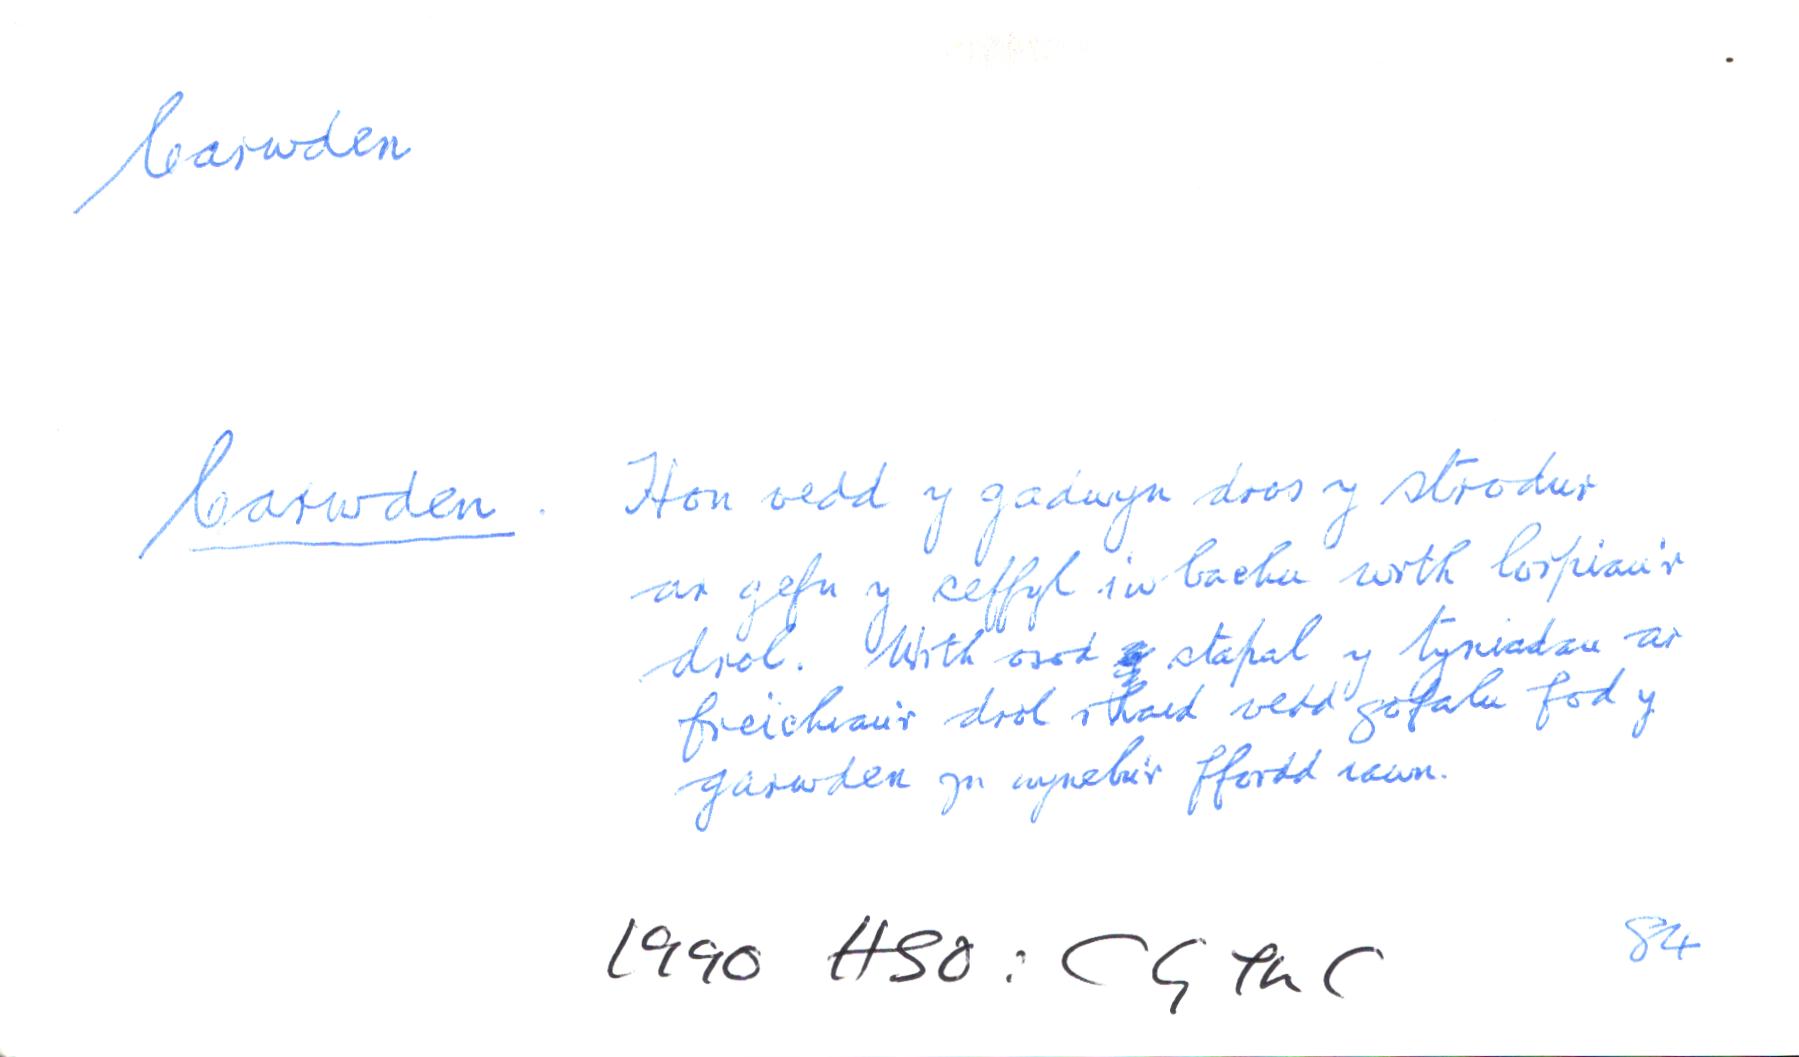 Carwden
Carwden. Hon oedd y gadwyn dros y strodur
ar gefn y ceffyl i'w bachu wrth lorpiau'r
drol. Wrth osod stapal y tyniadau ar
freichiau'r drol rhaid oedd gofalu fod y
garwden yn wynebu'r ffordd iawn.
1990 HSO: CGThC 84